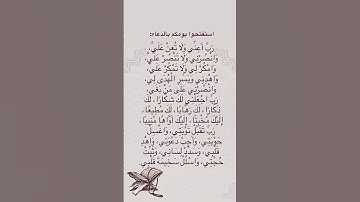 استفتحوا يومكم بالدعاء:
رَبِّ أَعِنِّي وَلَا تُعِنْ عَلَيَّ،
وَانْصُرْنِي وَلَا تَنْصُرْ عَلَيَّ،
وَامْكُرْ لِي وَلَا تَمْكُرْ عَلَيَّ،
وَاهْدِنِي وَيَسِّرِ الْهُدَى لِي،
وَانْصُرْنِي عَلَى مَنْ بَغَى
رَبِّ اجْعَلْنِي لَكَ شَكَّارًا، لَكَ
ذَكَّارًا، لَكَ رَهَّابًا، لَكَ مُطِيعًا،
إِلَيْكَ مُخْبِتًا، إِلَيْكَ أَوَّاهًا مُنِيبًا،
رَبِّ تَقَبَّلْ تَوْبَتِي، وَاغْسِلْ
حَوْبَتِي، وَأَجِبْ دَعْوَتِي، وَاهْدِ
قَلْبِي، وَسَدِّدْ لِسَانِي، وَثَبِّتْ
حُجَّتِي، وَاسْلُلْ سَخِيمَةَ قَلْبِي